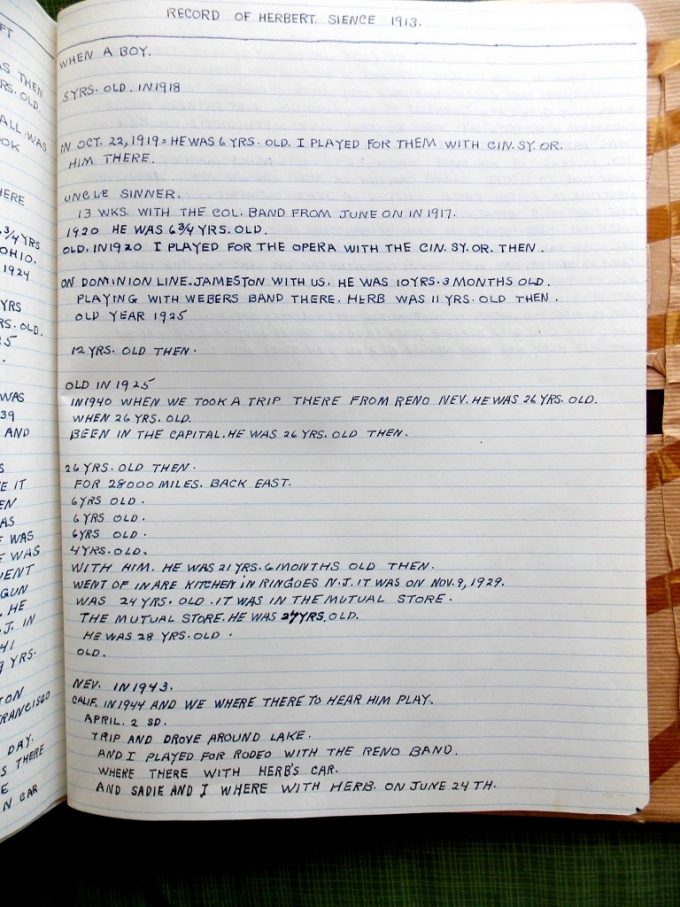 FT
RECORD OF HERBERT. SIENCE 1913.
WHEN A BOY.
S THEN
RS. OLD
5 YRS. OLD. IN 1918
ALL WAS
OOK
IN OCT. 22, 1919 = HE WAS 6 YRS. OLD. I PLAYED FOR THEM WITH CIN. SY. OR.
HIM THERE.
HERE
UNCLE SINNER.
13 WKS. WITH THE COL. BAND FROM JUNE ON IN 1917.
3/4 YRS
1920 HE WAS 6 3/4 YRS. OLD.
OHIO.
OLD. IN 1920 I PLAYED FOR THE OPERA WITH THE CIN. SY. OR. THEN.
1924
ON DOMINION LINE. JAMESTON WITH US. HE WAS 10 YRS. 3 MONTHS OLD.
YRS
PLAYING WITH WEBERS BAND THERE. HERB WAS 11 YRS. OLD THEN.
RS. OLD.
OLD YEAR 1925
12 YRS. OLD THEN.
OLD IN 1925
WAS
IN 1940 WHEN WE TOOK A TRIP THERE FROM RENO NEV. HE WAS 26 YRS. OLD.
39
WHEN 26 YRS. OLD.
AND
BEEN IN THE CAPITAL. HE WAS 26 YRS. OLD THEN.
26 YRS. OLD THEN.
E IT
FOR 28000 MILES. BACK EAST.
EN
6 YRS OLD.
AS
6 YRS OLD.
WAS
6 YRS OLD.
E WAS
4 YRS. OLD.
UENT
WITH HIM. HE WAS 21 YRS. 6 MONTHS OLD THEN.
GUN
WENT OF IN ARE KITCHEN IN RINGOES N.J. IT WAS ON NOV. 9, 1929.
HE
WAS 24 YRS. OLD. IT WAS IN THE MUTUAL STORE.
J. IN
THE MUTUAL STORE. HE WAS 24 YRS. OLD.
41
HE WAS 28 YRS. OLD.
YRS.
OLD.
TON
NEV. IN 1943.
FRANCISCO
CALIF. IN 1944 AND WE WHERE THERE TO HEAR HIM PLAY.
APRIL. 2 SD.
DAY.
TRIP AND DROVE AROUND LAKE.
S THERE
AND I PLAYED FOR RODEO WITH THE RENO BAND.
E
WHERE THERE WITH HERB'S CAR.
N CAR
AND SADIE AND I WHERE WITH HERB. ON JUNE 24 TH.